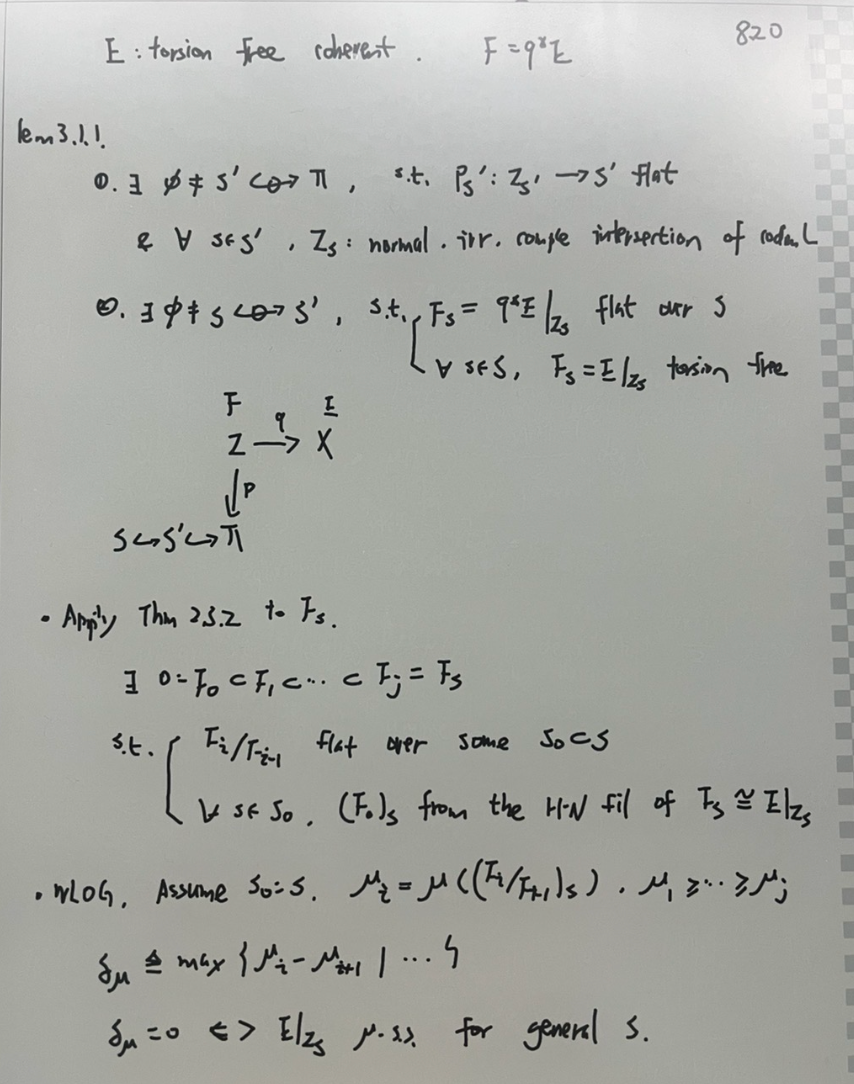 820
E : torsion free coherent . F = q*E
lem 3.1.1.
①. ∃ ∅ ≠ S' ↪ Π , s.t. P_S' : Z_S' → S' flat
& ∀ s∈S' , Z_s : normal . irr. intersection of
②. ∃ ∅ ≠ S ↪ S' , s.t. F_S = q*E|_Z_S flat over S
∀ s∈S, F_s = E|_Z_s torsion free
F E
Z →q X
↓ P
S ↪ S' ↪ Π
• Apply Thm 2.3.2 to F_S .
∃ 0 = F_0 ⊂ F_1 ⊂ ... ⊂ F_j = F_S
s.t. F_i / F_i-1 flat over some S_0 ⊂ S
∀ s∈S_0 . (F_•)_s from the H-N fil of F_s ≅ E|_Z_s
• WLOG, Assume S_0 = S. μ_i = μ((F_i/F_i+1)_s) . μ_1 ≥ ... ≥ μ_j
δ_μ ≜ max { μ_i - μ_i+1 | ... }
δ_μ = 0 <=> E|_Z_s μ.s.s. for general s.